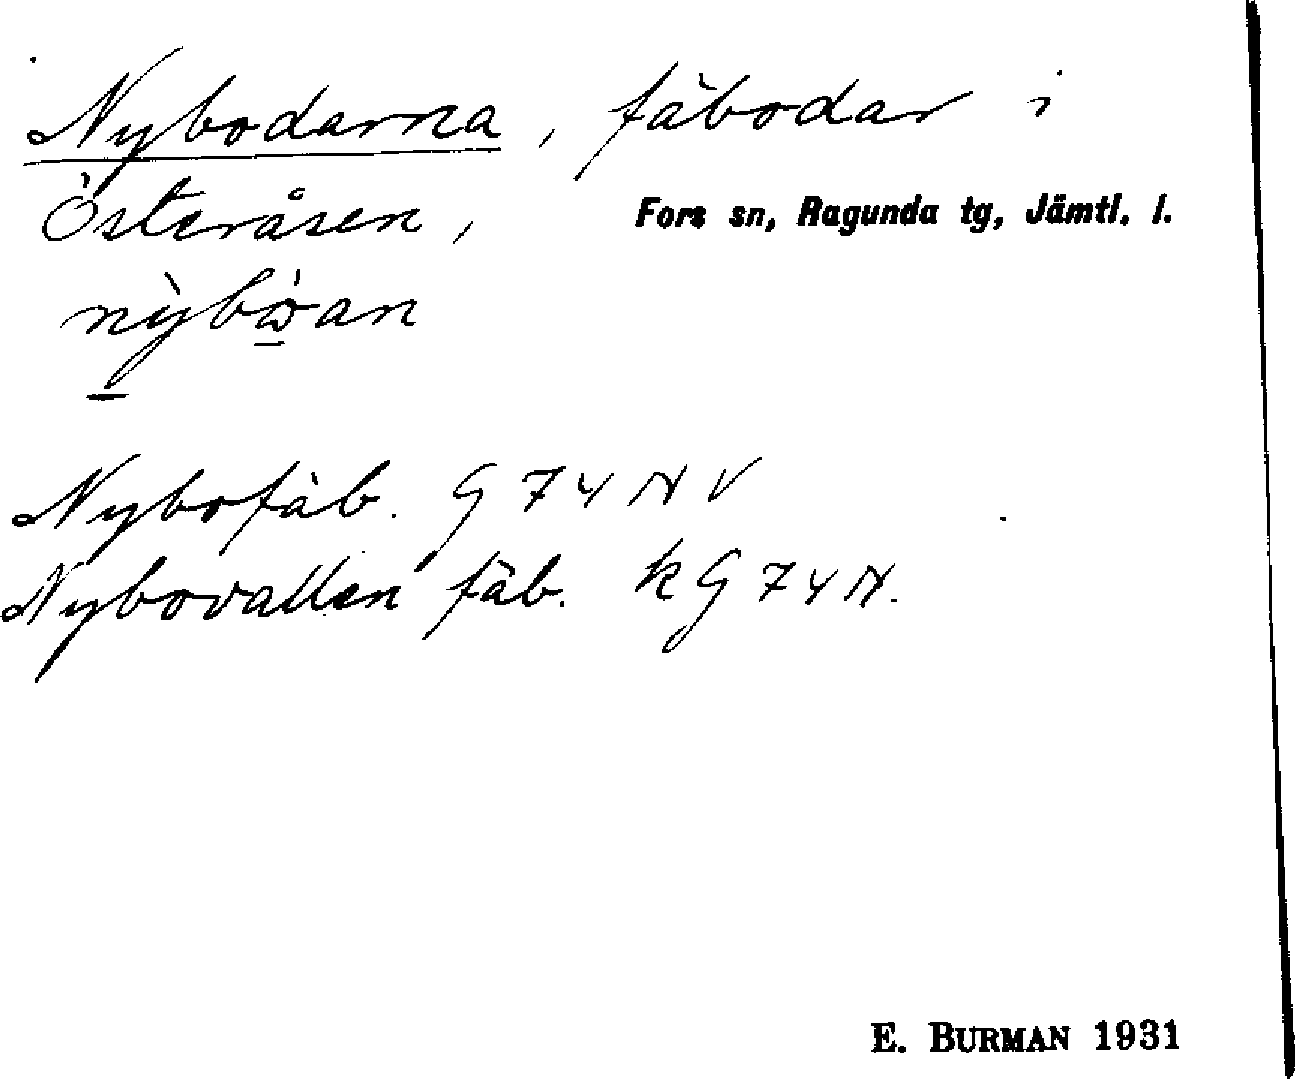 Nybodarna, fäbodar i
Österåsen, Fors sn, Ragunda tg, Jämtl. l.
Nybofäb. G 74 N V
Nybovallen fäb. k G 74 N.
E. BURMAN 1931